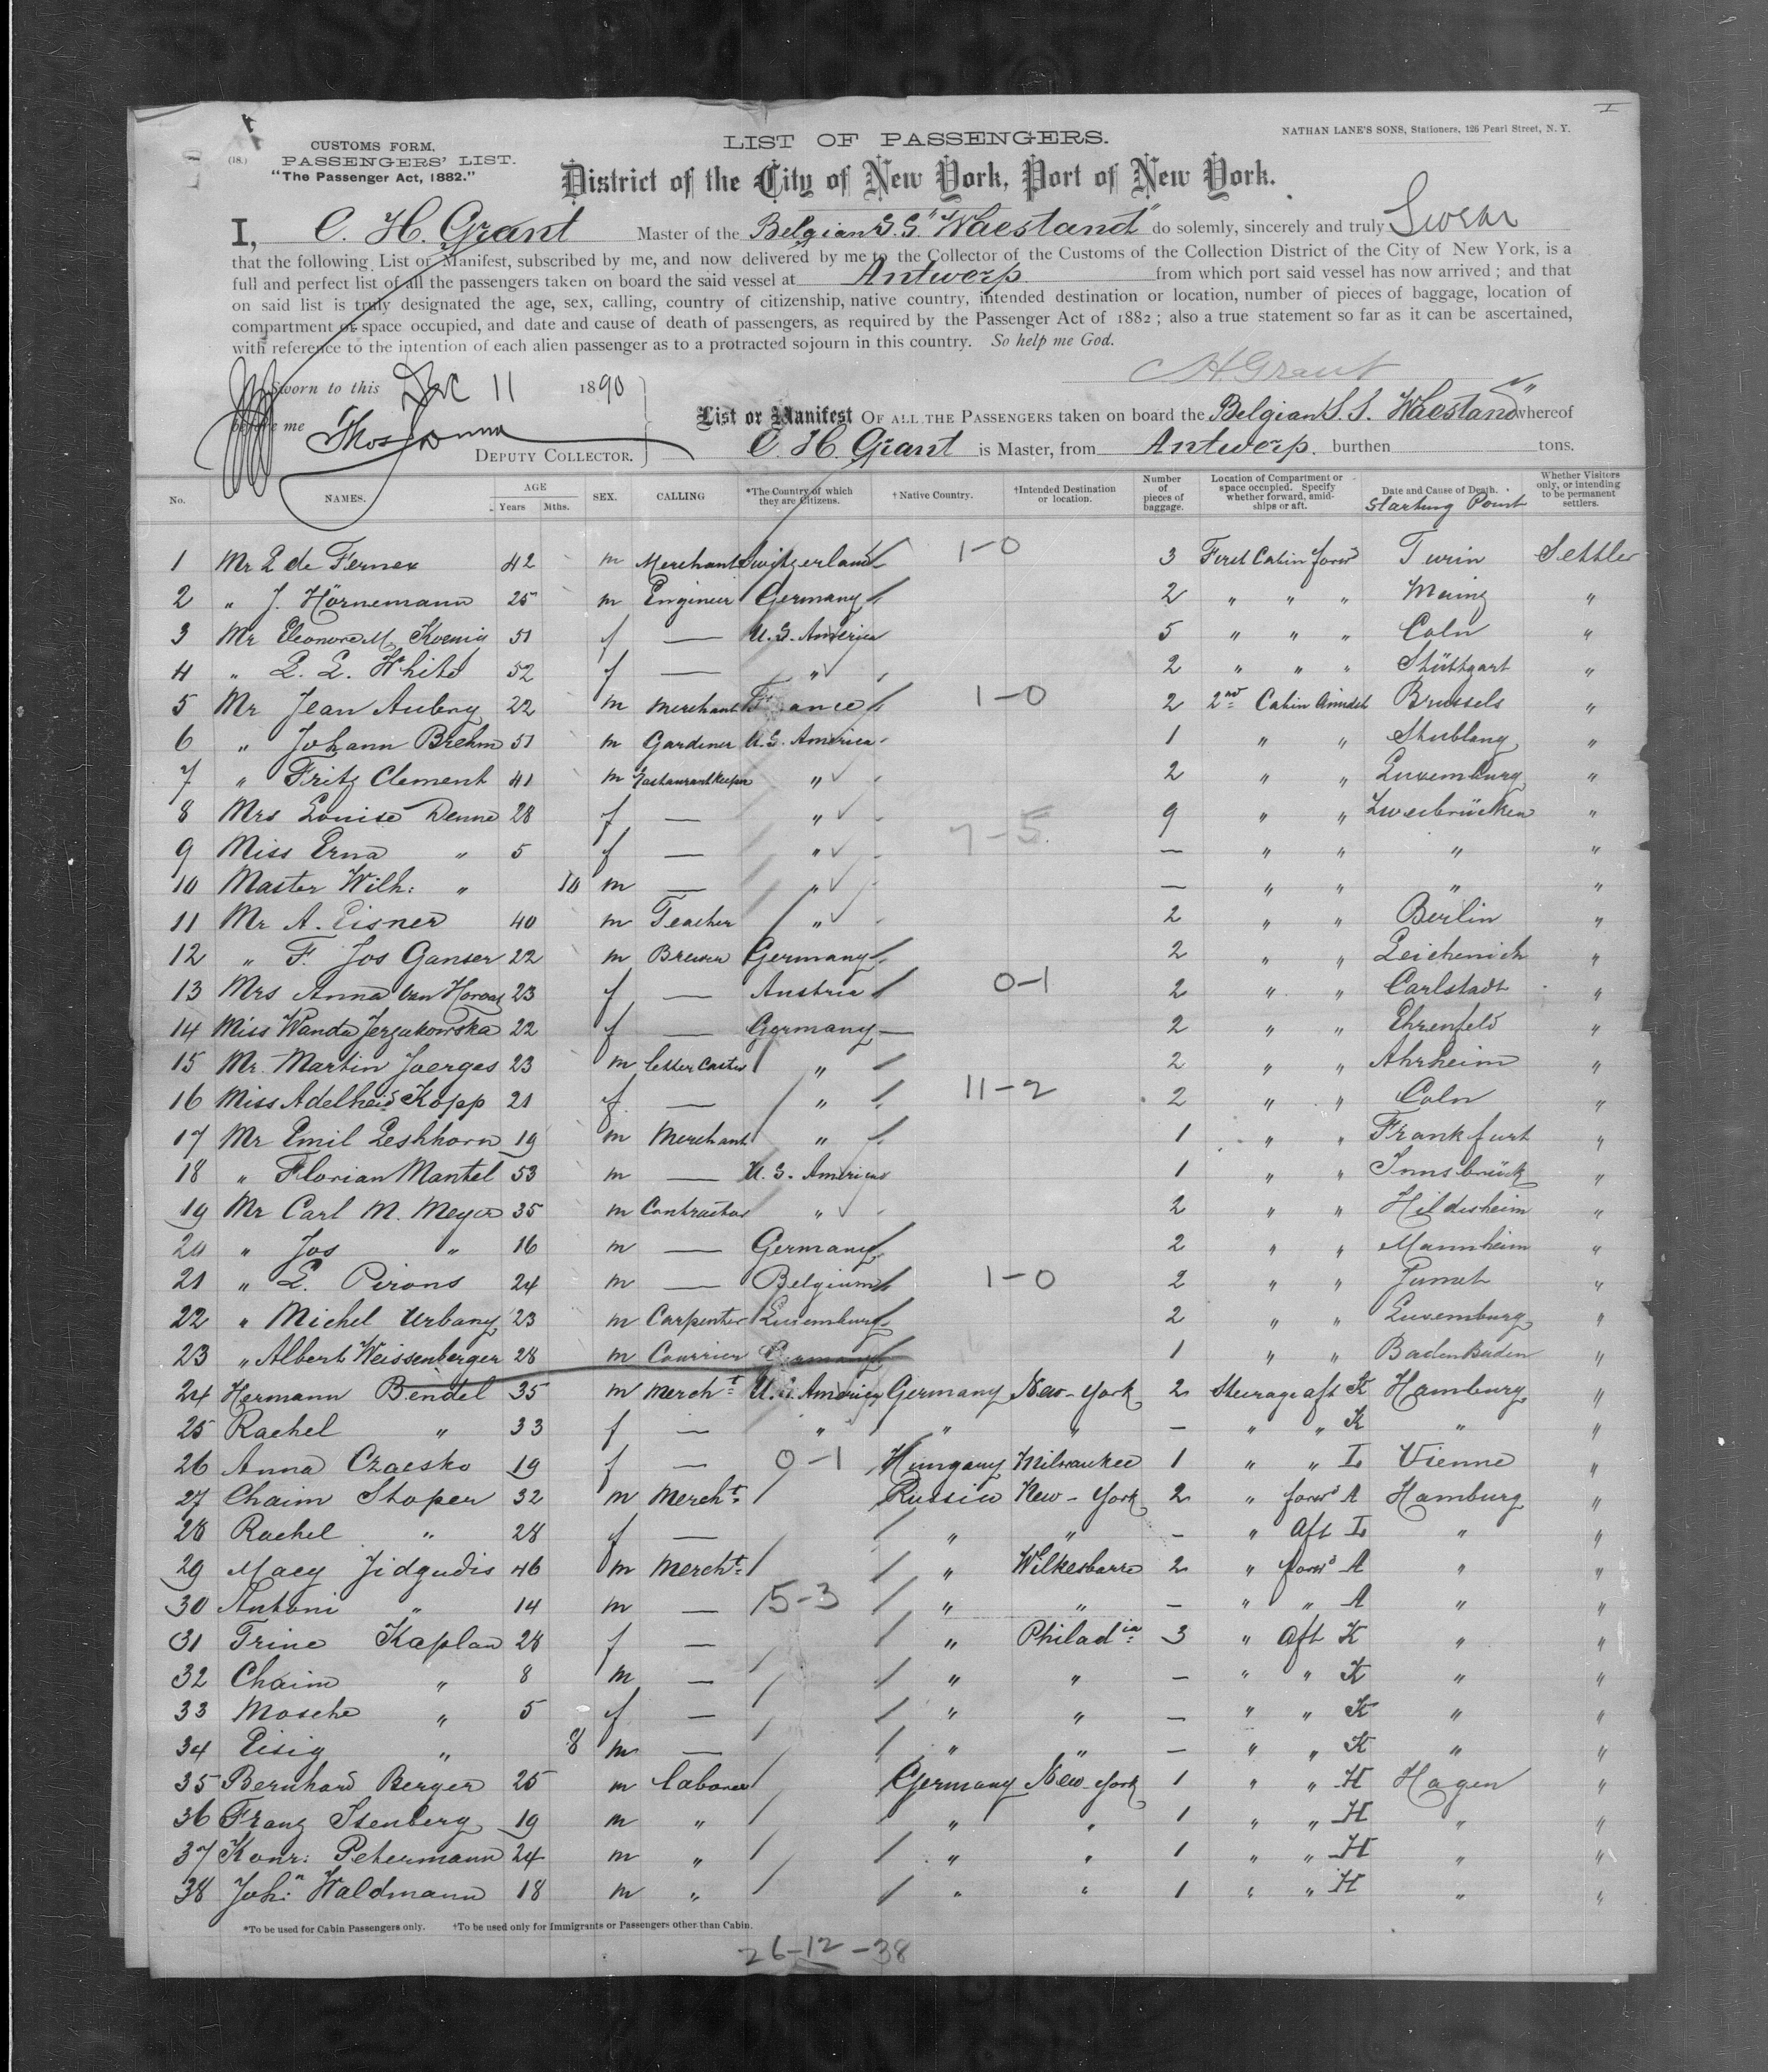 I
(18.)
CUSTOMS FORM.
PASSENGERS' LIST.
"The Passenger Act, 1882."
LIST OF PASSENGERS.
NATHAN LANE'S SONS, Stationers, 126 Pearl Street, N. Y.
District of the City of New York, Port of New York.
I, C. H. Grant Master of the Belgian S.S. "Waesland" do solemly, sincerely and truly Swear
that the following List or Manifest, subscribed by me, and now delivered by me to the Collector of the Customs of the Collection District of the City of New York, is a
full and perfect list of all the passengers taken on board the said vessel at Antwerp from which port said vessel has now arrived; and that
on said list is truly designated the age, sex, calling, country of citizenship, native country, intended destination or location, number of pieces of baggage, location of
compartment or space occupied, and date and cause of death of passengers, as required by the Passenger Act of 1882; also a true statement so far as it can be ascertained,
with reference to the intention of each alien passenger as to a protracted sojourn in this country. So help me God.
C H Grant
Sworn to this Dec 11 1890
before me Thos
DEPUTY COLLECTOR.
List or Manifest OF ALL THE PASSENGERS taken on board the Belgian S.S. "Waesland" whereof
C. H. Grant is Master, from Antwerp. burthen tons.
No. NAMES. AGE Years Mths. SEX. CALLING *The Country of which they are Citizens. † Native Country. †Intended Destination or location. Number of pieces of baggage. Location of Compartment or space occupied. Specify whether forward, amidships or aft. Date and Cause of Death. Starting Point Whether Visitors only, or intending to be permanent settlers.
1 Mr L de Fernex 42 m Merchant Switzerland 1-0 3 First Cabin forwd Turin Settler
2 " J. Hörnemann 25 m Engineer Germany 2 " " " Mainz "
3 Mr Eleonore M. Koenig 51 f — U.S. America 5 " " " Coln "
4 " L. L. White 52 f — " 2 " " " Stüttgart "
5 Mr Jean Aubry 22 m Merchant France 1-0 2 2nd Cabin Amidsh Brussels "
6 " Johann Brehm 51 m Gardener U.S. America 1 " " Stublang "
7 " Fritz Clement 41 m Restaurantkeeper " 2 " " Luxemburg "
8 Mrs Louise Denne 28 f — " 9 " " Zweibrücken "
9 Miss Erna " 5 f — " 7-5. — " " " "
10 Master Wilh: " 10 m — " — " " " "
11 Mr A. Eisner 40 m Teacher " 2 " " Berlin "
12 " F. Jos Ganser 22 m Brewer Germany 2 " " "
13 Mrs Anna van 23 f — Austria 0-1 2 " " Carlstadt "
14 Miss Wanda Jerzukowska 22 f — Germany — 2 " " Ehrenfeld "
15 Mr. Martin Joerges 23 m Letter Caster " 2 " " Ahrheim "
16 Miss Adelheid Kopp 21 f — " 11-2 2 " " Coln "
17 Mr Emil Leshhorn 19 m Merchant " 1 " " Frankfurt "
18 " Florian Mantel 53 m — U.S. America 1 " " Innsbrück "
19 Mr Carl M. Meyer 35 m Contractor " 2 " " Hildesheim "
20 " Jos " 16 m — Germany 2 " " Mannheim "
21 " L. Pirons 24 m — Belgium 1-0 2 " " Jumet "
22 " Michel Urbany 23 m Carpenter Luxemburg 2 " " Luxemburg "
23 " Albert Weissenberger 28 m Courrier Germany 1 " " Baden Baden "
24 Hermann Bendel 35 m Mercht U.S. America Germany New-York 2 Steerage aft K Hamburg "
25 Rachel " 33 f — " " " — " " K " "
26 Anna Czaesko 19 f — 0-1 Hungary Milwaukee 1 " " L Vienne "
27 Chaim Stoper 32 m Mercht. Russia New-York 2 " forwd A Hamburg "
28 Rachel " 28 f — " " — " Aft L " "
29 Maey Jidgudis 46 m Mercht. " Wilkesbarre 2 " forwd A " "
30 Antoni " 14 m — 15-3 " " — " " A " "
31 Trine Kaplan 28 f — " Philadia 3 " Aft K " "
32 Chaim " 8 m — " " — " " K " "
33 Mosche " 5 f — " " — " " K " "
34 Eisig " 8 m — " " — " " K " "
35 Bernhard Berger 25 m Laborer Germany New-York 1 " " H Hagen "
36 Franz Isenberg 19 m " " " 1 " " H " "
37 Konr: Petermann 24 m " " " 1 " " H " "
38 John: Waldmann 18 m " " " 1 " " H " "
*To be used for Cabin Passengers only. †To be used only for Immigrants or Passengers other than Cabin.
26-12-38